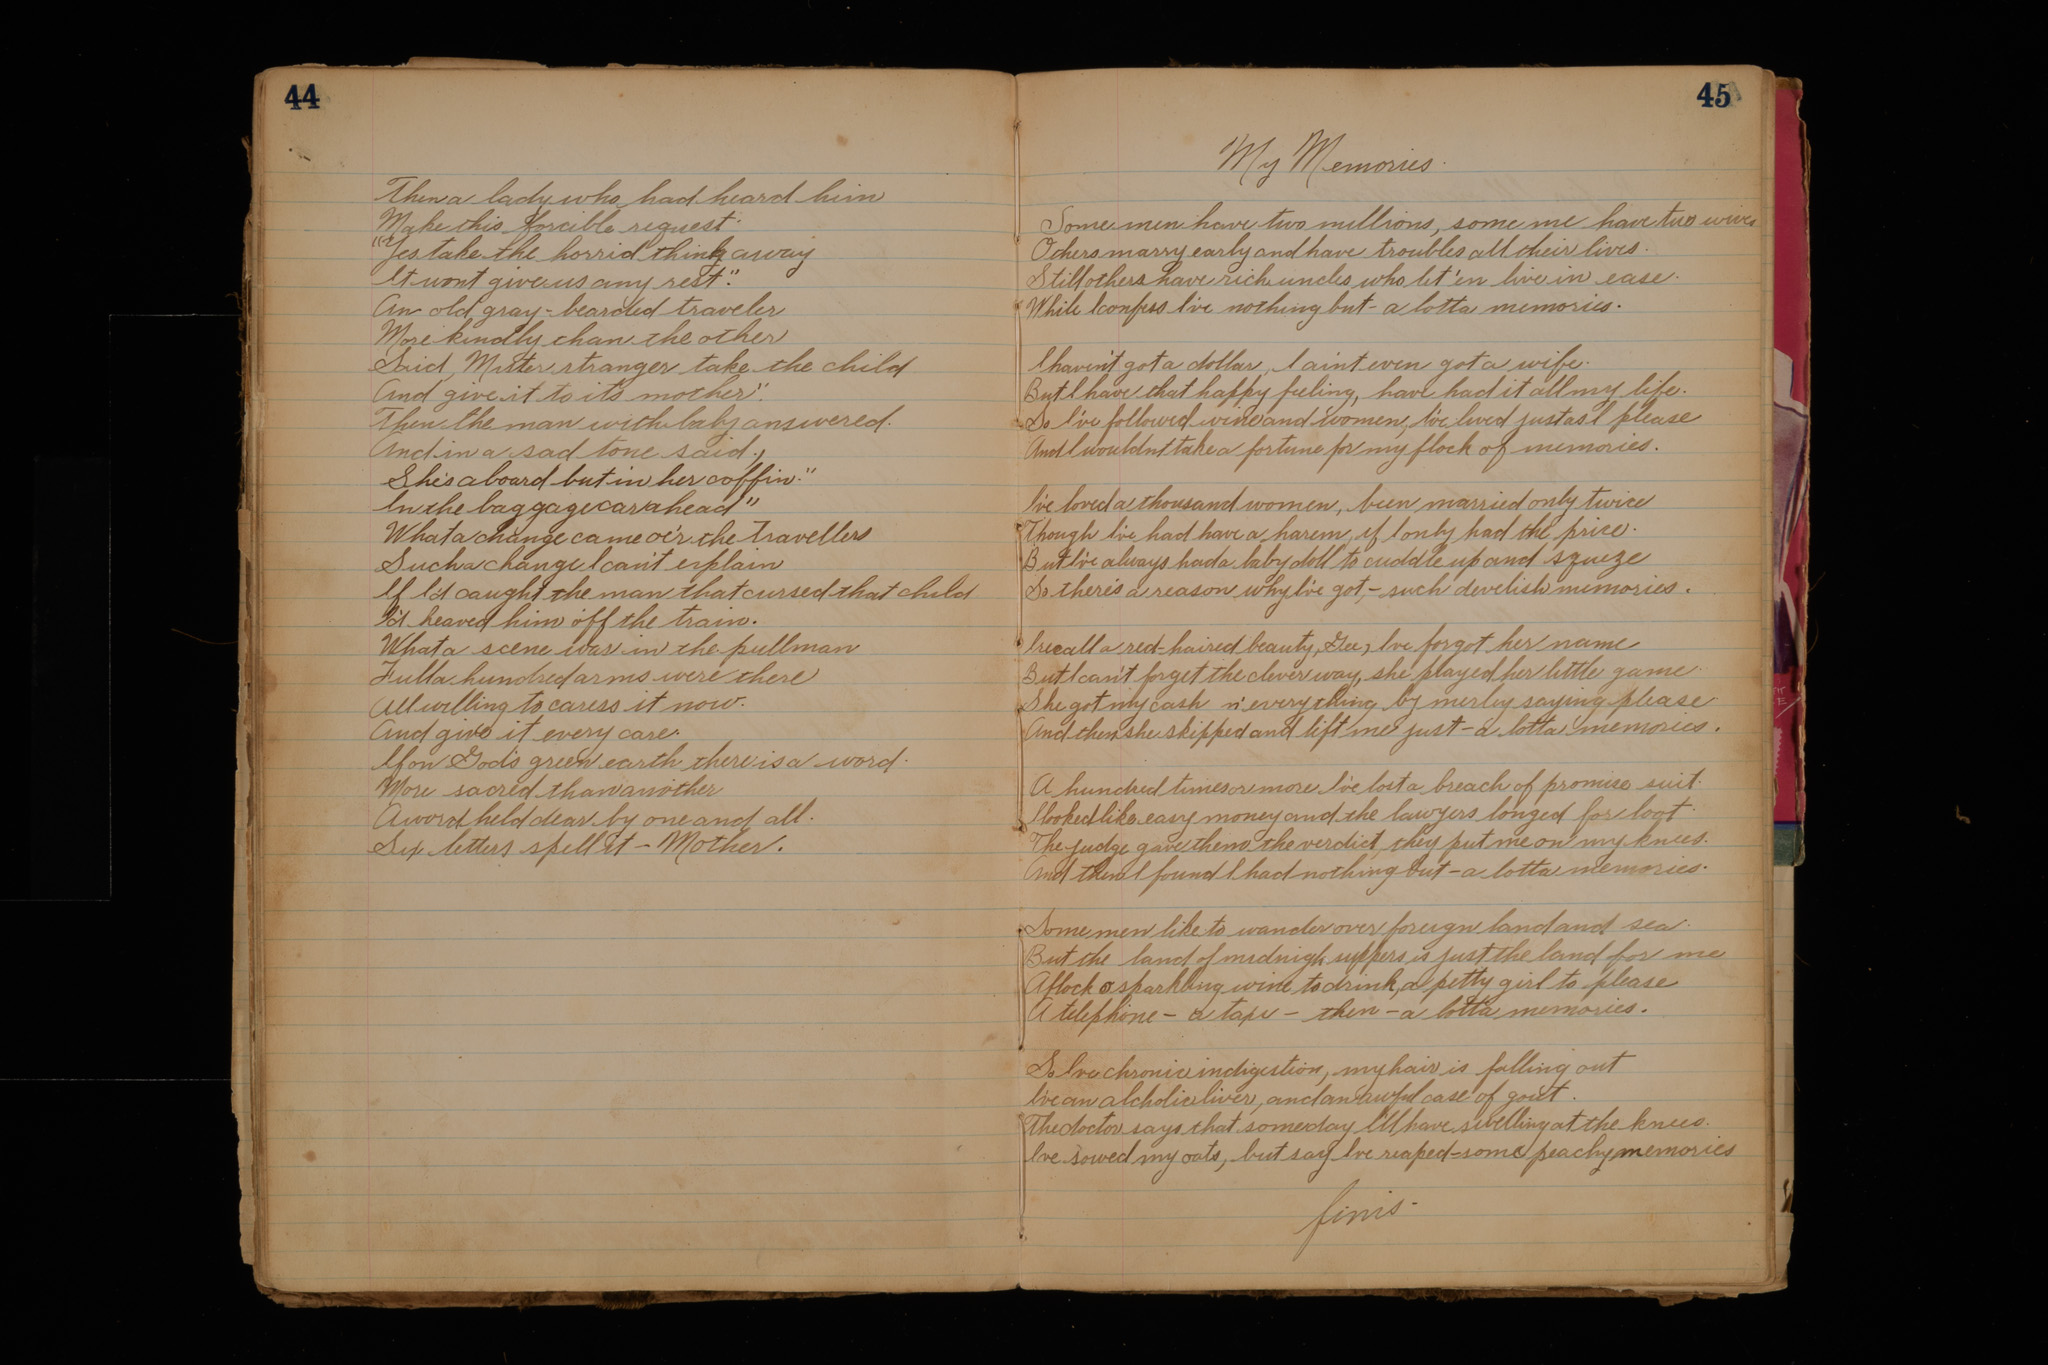 44
Then a lady who had heard him
Make this forcible request.
"Yes take the horrid thing away
It wont give us any rest".
An old gray-bearded traveler
More kindly than the other
Said, Mister stranger take the child
And give it to its mother".
Then the man with baby answered.
And in a sad tone said,
She's aboard but in her coffin."
In the baggage car ahead"
What a change came oe'r the travellers
Such a change I can't explain
If I'd caught the man that cursed that child
I'd heaved him off the train.
What a scene was in the pullman
Full a hundred arms were there
All willing to caress it now.
And give it every care.
If on God's green earth there is a word.
More sacred than another
A word held dear by one and all.
Six letters spell it - Mother.
45
My Memories.
Some men have two millions, some me have two wives
Others marry early and have troubles all their lives.
Still others have rich uncles who let 'en live in ease.
While I confess I've nothing but - a lotta memories.
I haven't got a dollar, I aint even got a wife.
But I have that happy feeling, have had it all my life.
So I've followed wine and women, I've lived just as I please
And I wouldn't take a fortune for my flock of memories.
I've loved a thousand women, been married only twice
Though I've had have a harem, if I only had the price.
But I've always had a baby doll to cuddle up and squeze
So there's a reason why I've got, - such develish memories.
I recall a red-haired beauty, Gee, I've forgot her name
But I can't forget the clever way, she played her little game.
She got my cash n' everything by merley saying please
And then she skipped and lift me just - a lotta memories.
A hundred times or more I've lost a breach of promise suit.
I looked like easy money and the lawyers longed for loot.
The judge gave them the verdict, they put me on my knees.
And then I found I had nothing but - a lotta memories.
Some men like to wander over foreign land and sea.
But the land of midnigh suppers is just the land for me
A flock o sparkling wine to drink, a petty girl to please
A telephone - a taxi - then - a lotta memories.
So I've chronic indigestion, my hair is falling out
I've an alcholic liver, and an awful case of gout.
The doctor says that someday I'll have swelling at the knees.
I've sowed my oats, but say I've reaped - some peachy memories
finis.